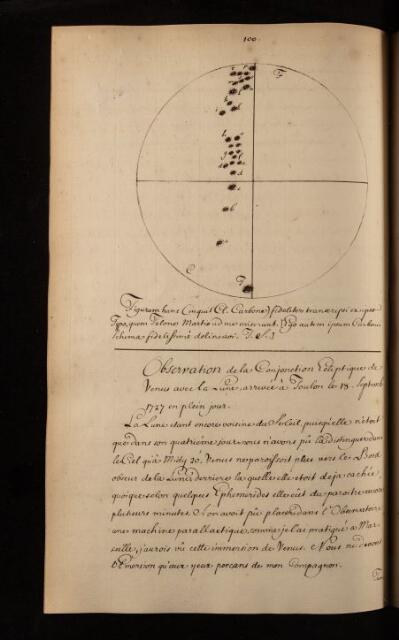 100.
Figuram hanc (inquit Cl. Carbone) fideliter transcripsi ex ipso
Typo, quem Telone Martio ad me miserunt. Ego autem ipsam Carbonii
schema fidelissime delineavi.
Observation de la Conjonction Ecliptique de
Venus avec la Lune, arrivée à Toulon le 18. Septemb
1727 en plein jour.
La Lune etant encore voisine du Soleil, puisqu'elle n'etoit
que dans son quatrieme jour, nous n'avons pû la distinguer dans
le Ciel qu'à Midy 30, Venus ne paroissoit plus vers le Bord
obscur de la Lune, derriere laquelle elle étoit deja cachée
quoique selon quelques Ephemerides elle eut du paroitre encore
plusieurs minutes. Si on avoit pu placer dans l'Observatoire
une machine parallactique, comme je l'ai pratiqué a Mar-
seille, j'aurois vû cette immersion de Venus. Nous ne devons
l'Emersion qu'aux yeux percans de mon Compagnon.